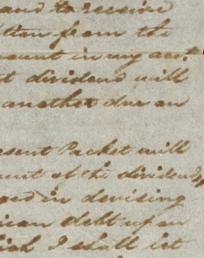 and to receive
from the
amount in my acct.
dividend will
another due on
resent Packet will
unt of the dividend,
ged in devising
ican debt upon
ich I shall